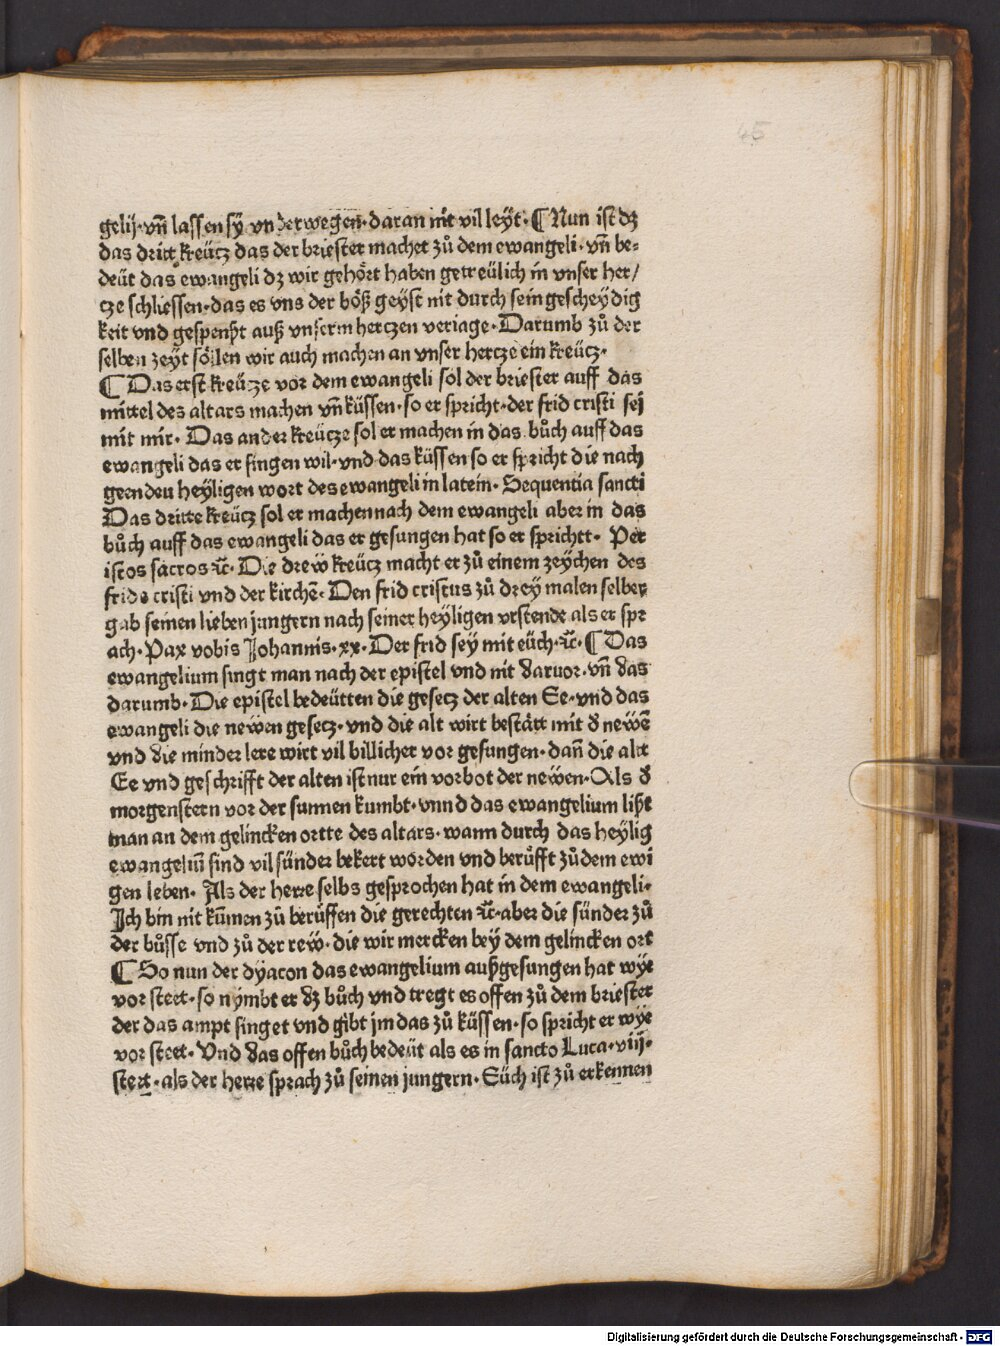 45
gelij·vñ lassen sÿ vnderwegen·daran nit vil leÿt·¶Nun ist dz
das dritt kreücz das der briester machet zů dem ewangeli·vñ be-
deüt das ewangeli dz wir gehört haben getreülich in vnser her/
cze schliessen·das es vns der böß geyst nit durch sein gescheÿdig
keit vnd gespenßt auß vnserm hertczen veriage·Darumb zů der
selben zeÿt söllen wir auch machen an vnser hertcze ein kreücz·
¶Das erst kreücze vor dem ewangeli sol der briester auff das
mittel des altars machen vñ küssen·so er spricht·der frid cristi sej
mit mir·Das ander kreücze sol er machen in das bůch auff das
ewangeli das er singen wil·vnd das küssen so er spricht die nach
geenden heÿligen wort des ewangeli in latein·Sequentia sancti
Das dritte kreücz sol er machen nach dem ewangeli aber in das
bůch auff das ewangeli das er gesungen hat so er sprichtt·Per
istos sacros ꝛc̃·Die drew̃ kreücz macht er zů einem zeÿchen des
frids cristi vnd der kirchē·Den frid cristus zů dreÿ malen selber
gab seinen lieben jungern nach seiner heÿligen vrstende als er spr
ach·Pax vobis Johannis·xx·Der frid seÿ mit eüch·ꝛc̃·¶Das
ewangelium singt man nach der epistel vnd nit daruor·vñ das
darumb·Die epistel bedeütten die gesecz der alten Ee·vnd das
ewangeli die newen gesecz·vnd die alt wirt bestätt mit d̾ newē
vnd die minder lere wirt vil billicher vor gesungen·dañ die alt
Ee vnd geschrifft der alten ist nur ein vorbot der newen·Als d̾
morgenstern vor der sunnen kumbt·vnnd das ewangelium lißt
man an dem gelincken ortte des altars·wann durch das heÿlig
ewangeliū sind vil sünder bekert worden vnd berůfft zů dem ewi
gen leben·Als der herre selbs gesprochen hat in dem ewangeli·
Ich bin nit kūmen zů berůffen die gerechten ꝛc̃·aber die sünder zů
der bůsse vnd zů der rew̃·die wir mercken beÿ dem gelincken ort
¶So nun der dÿacon das ewangelium außgesungen hat wÿe
vor steet·so nÿmbt er dz bůch vnd tregt es offen zů dem briester
der das ampt singet vnd gibt jm das zů küssen·so spricht er wÿe
vor steet·Vnd das offen bůch bedeüt als es in sancto Luca·viij·
steet·als der herre sprach zů seinen jungern·Eüch ist zů erkennen
Digitalisierung gefördert durch die Deutsche Forschungsgemeinschaft - DFG